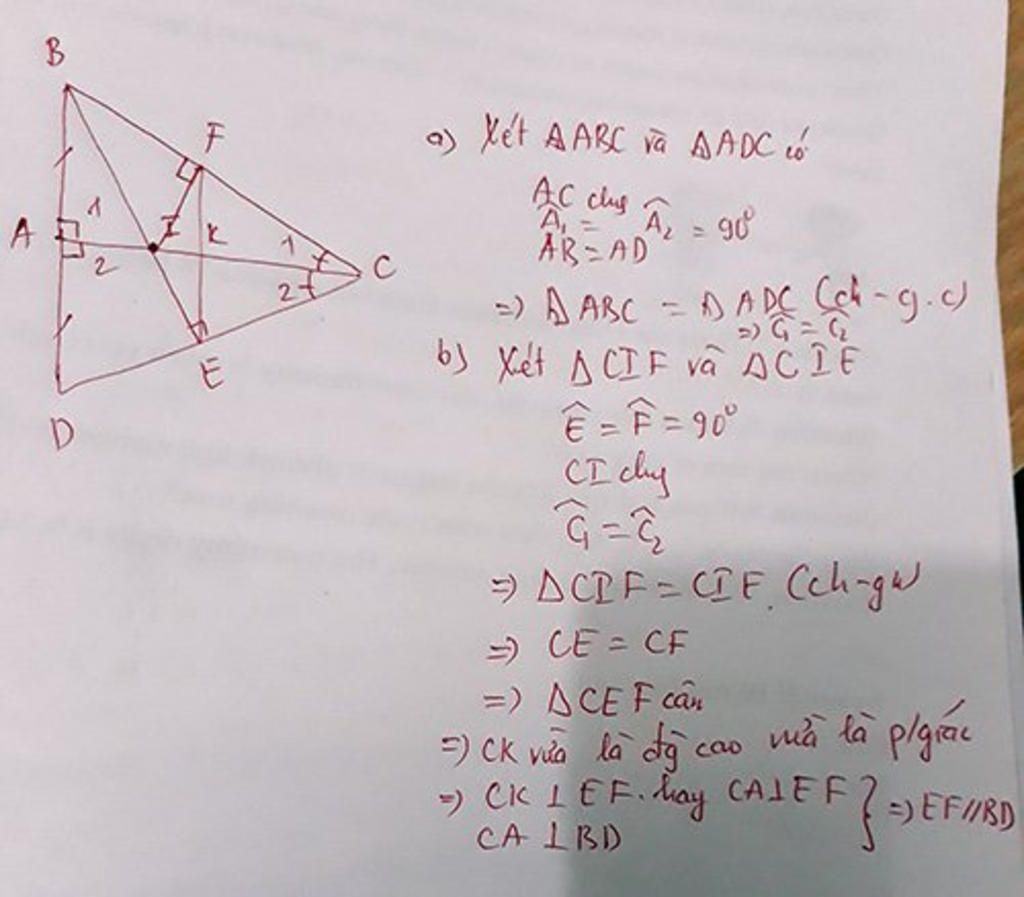 B
F
A
1
I
K
1
2
2
C
E
D
a) Xét ΔABC và ΔADC có
AC chg
Â₁ = Â₂ = 90°
AB = AD
=) ΔABC = ΔADC (ch - g.c)
=) Ĉ₁ = Ĉ₂
b) Xét ΔCIF và ΔCIE
Ê = F̂ = 90°
CI chg
Ĉ₁ = Ĉ₂
=) ΔCIF = CIE. (ch-gn)
=) CE = CF
=) ΔCEF cân
=) CK vừa là đg cao vừa là p/giác
=) CK ⊥ EF. hay CA ⊥ EF } =) EF // BD
CA ⊥ BD